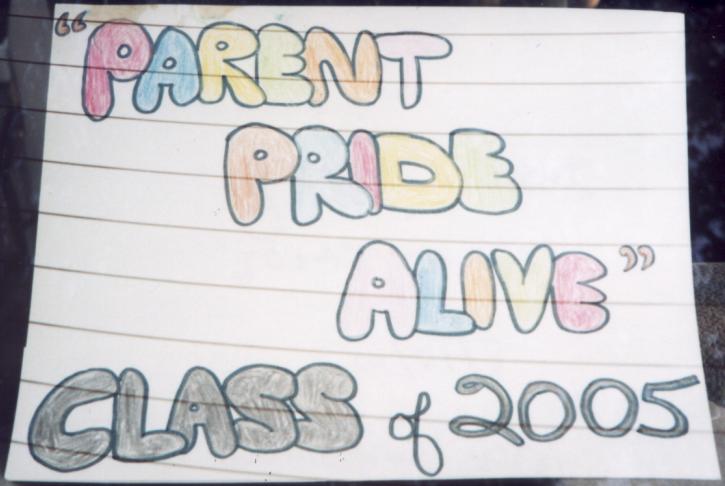 "PARENT
PRIDE
ALIVE"
CLASS of 2005